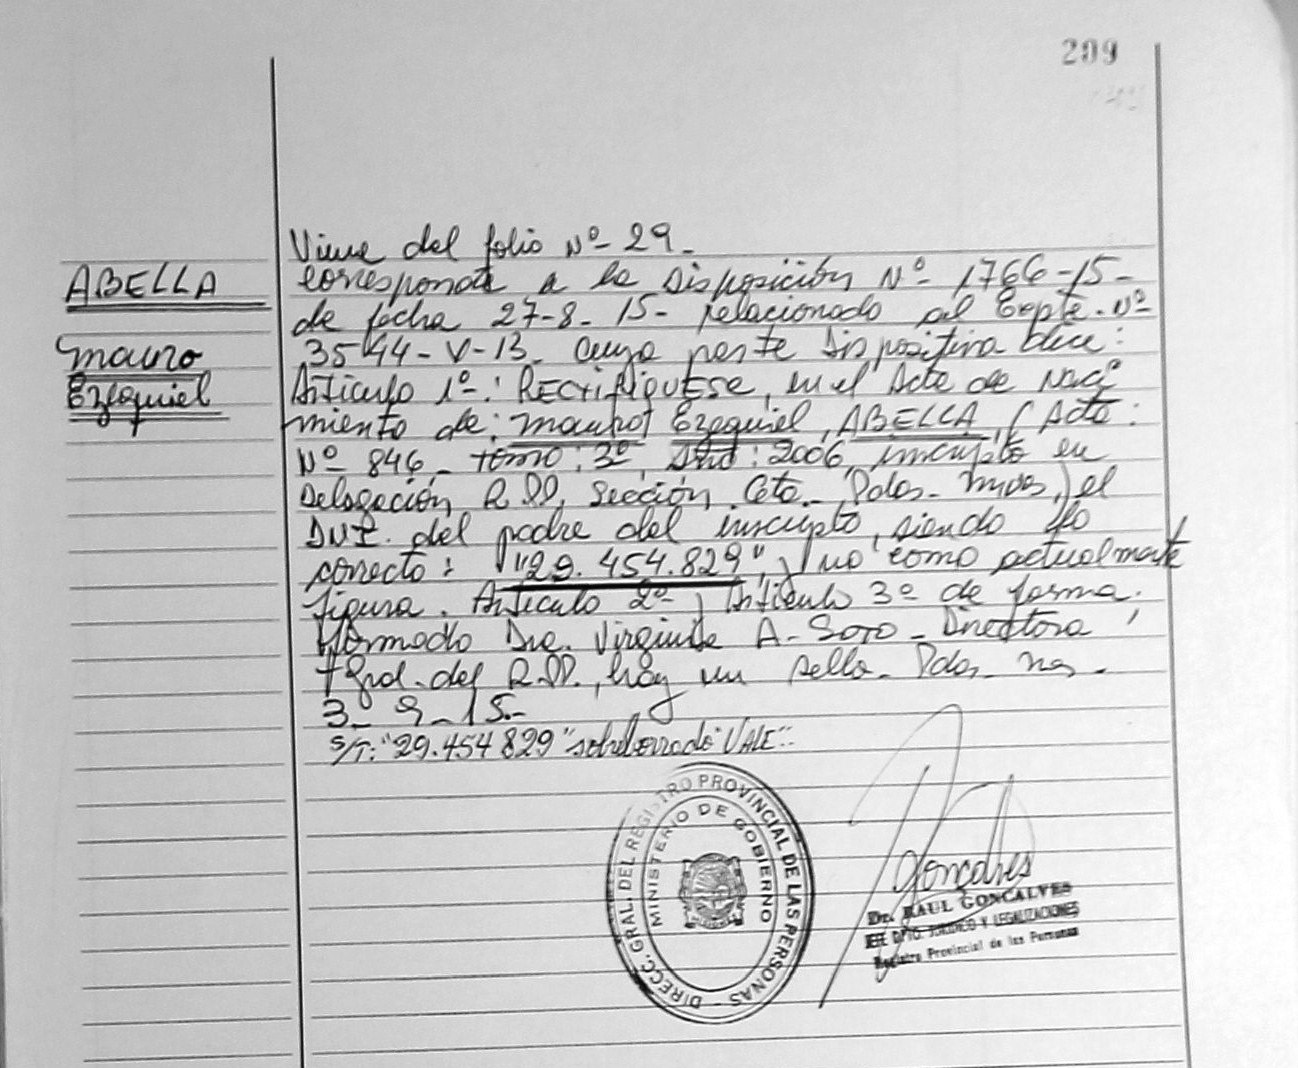 209
Viene del folio Nº 29.
ABELLA
corresponde a la Disposición Nº 1766-15-
de fecha 27-8-15- relacionado al Expte. Nº
Mauro
3544-V-13 cuya parte dispositiva dice:
Ezequiel
Artículo 1º: RECTIFIQUESE, en el Acta de Naci
miento de: Mauro Ezequiel, ABELLA, (Acta:
Nº 846- Tomo: 3º, Año: 2006, inscripto en
Delegación R.PP, Sección Ceta. Pdas. Mnes,) el
DNI. del padre del inscripto, siendo lo
correcto: "29.454.829", y no como actualmente
figura. Artículo 2º y Artículo 3º de forma.
Firmado Dra. Virginia A. Soto - Directora
Gral. del R.PP., hay un sello- Pdas. Mes.
3- 9-15-
S/T: "29.454 829" sobreborrado "VALE".
DIRECC. GRAL. DEL REGISTRO PROVINCIAL DE LAS PERSONAS
MINISTERIO DE GOBIERNO
Goncalves
Dr. RAUL GONCALVES
JEFE DPTO. JURIDICO Y LEGALIZACIONES
Registro Provincial de las Personas